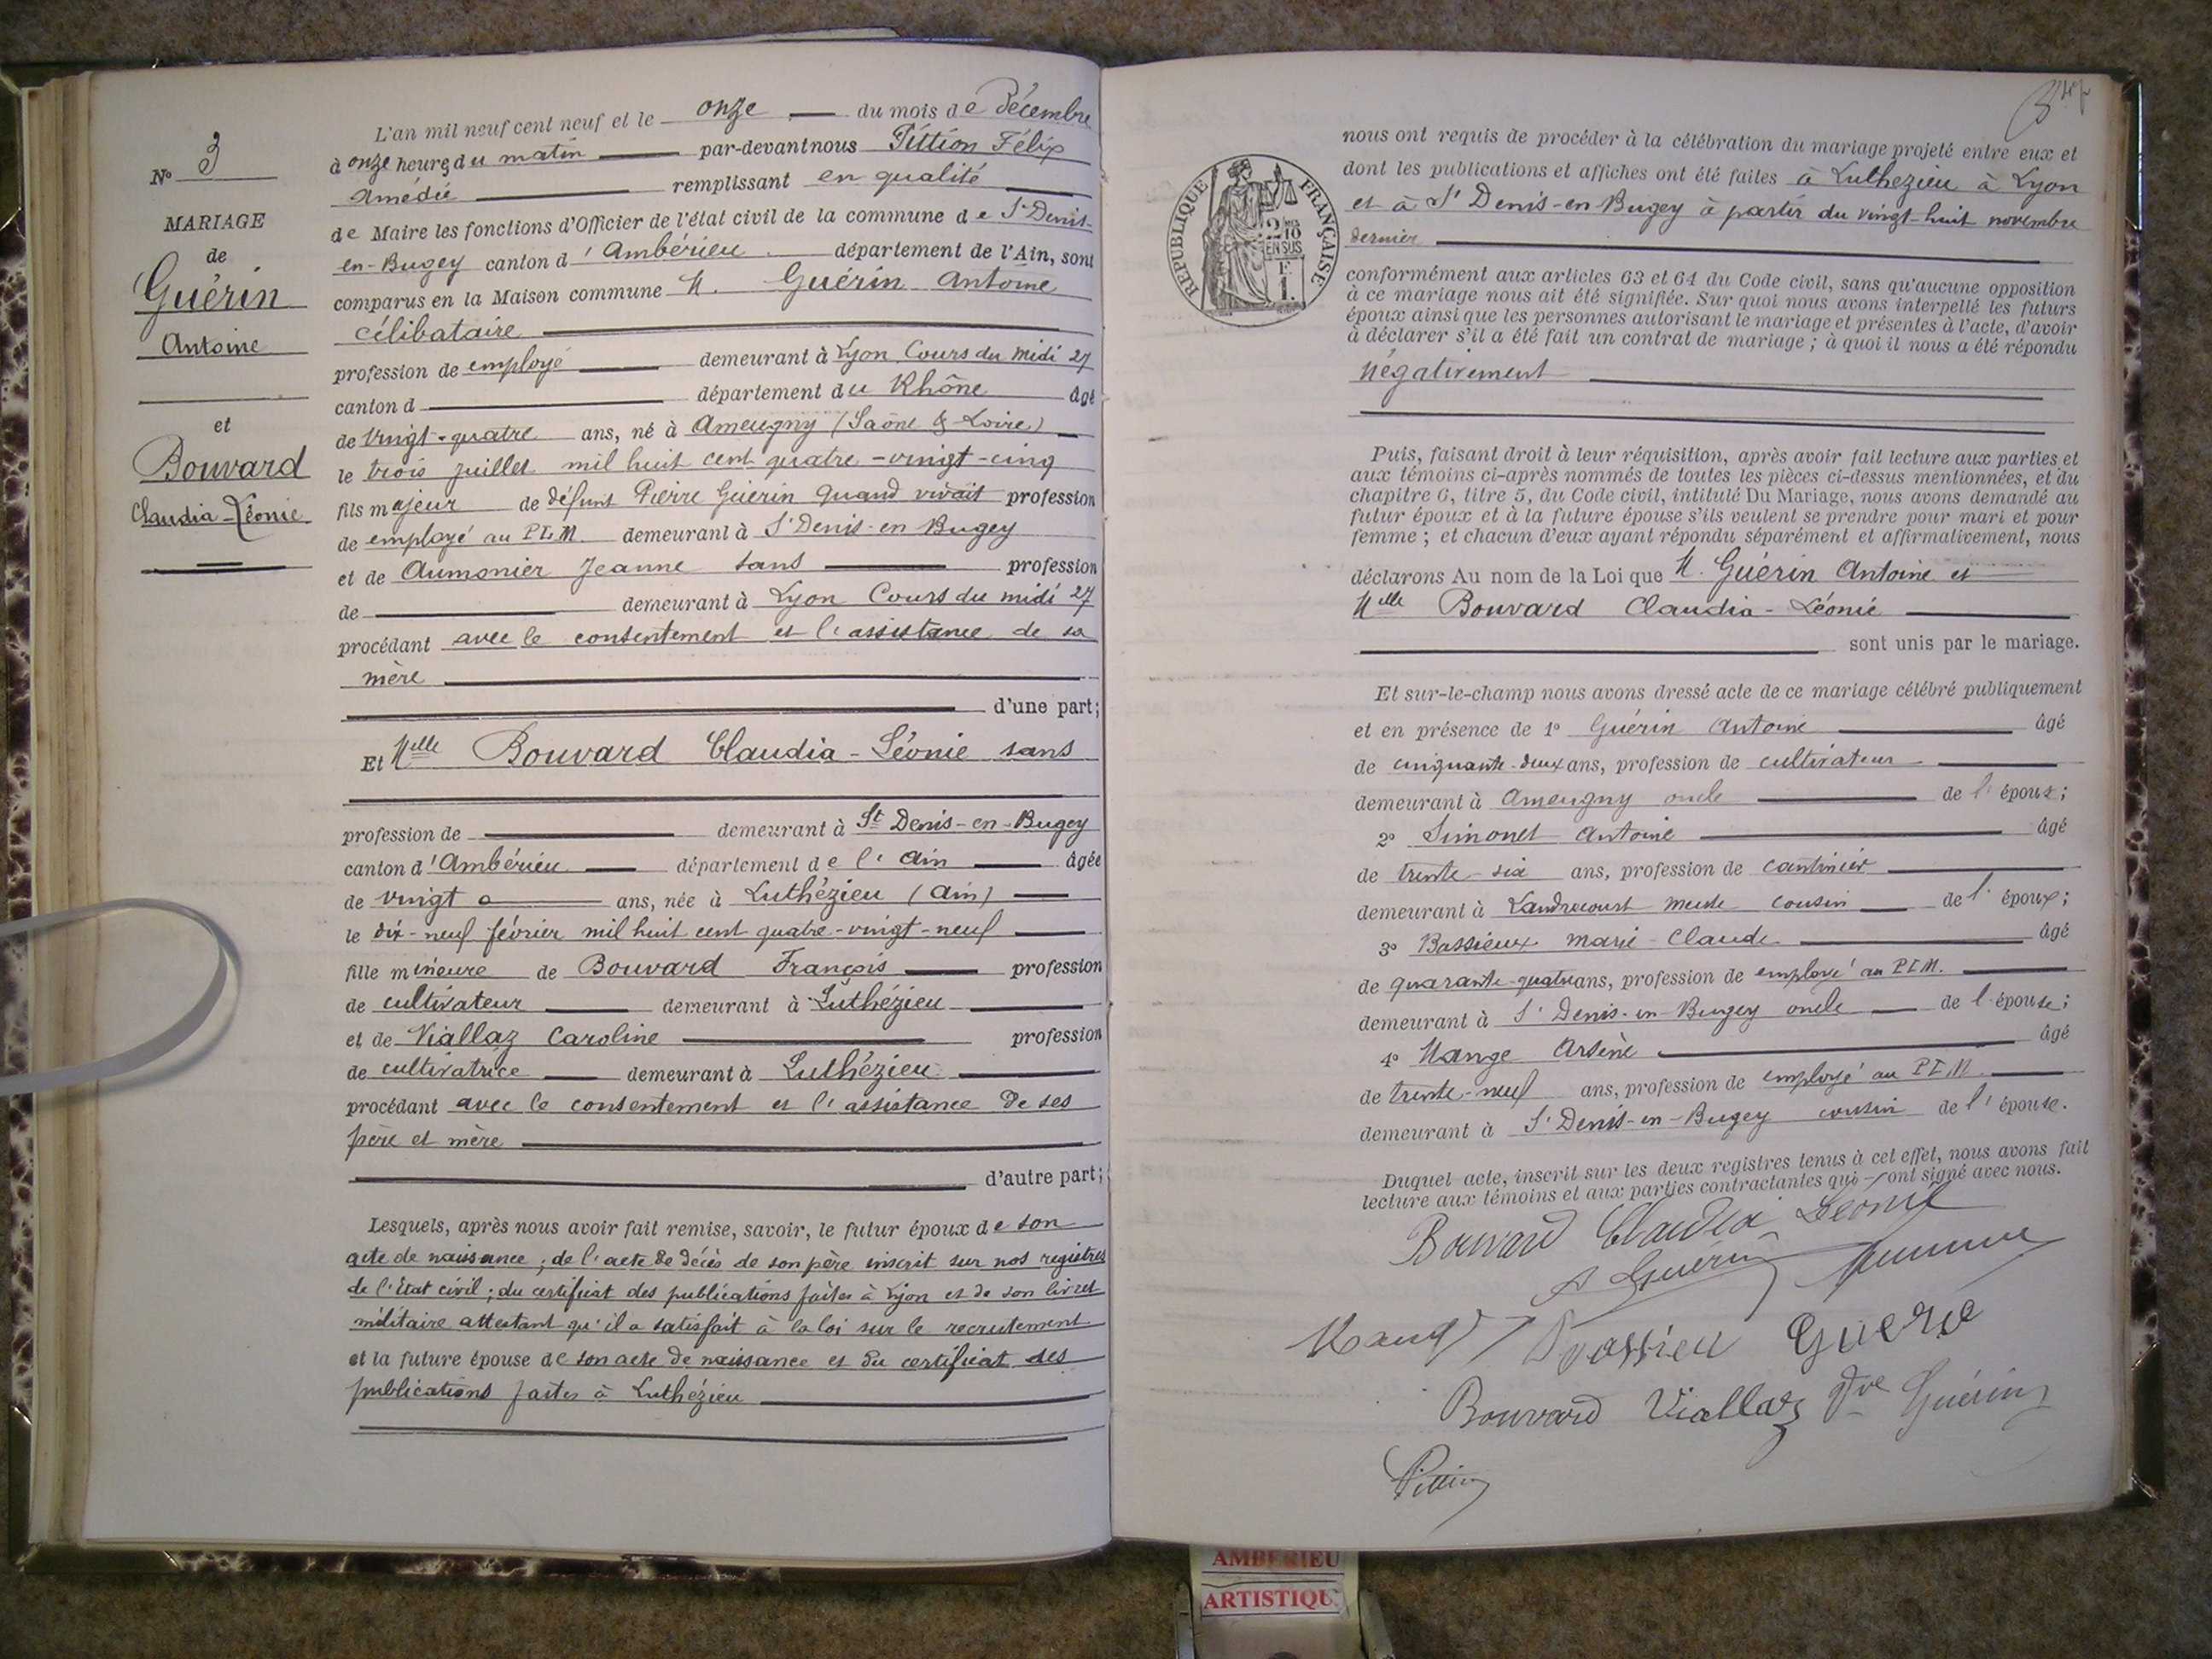 N° 3
MARIAGE
de
Guérin
Antoine
et
Bouvard
Claudia-Léonie
L'an mil neuf cent neuf et le onze du mois de Décembre
à onze heures du matin par-devant nous Pittion Félix
Amédée remplissant en qualité
de Maire les fonctions d'Officier de l'état civil de la commune de St Denis-
en-Bugey canton d'Ambérieu département de l'Ain, sont
comparus en la Maison commune M. Guérin Antoine
célibataire
profession de employé demeurant à Lyon Cours du Midi 27
canton d département du Rhône âgé
de vingt-quatre ans, né à Ameugny (Saône & Loire)
le trois juillet mil huit cent quatre-vingt-cinq
fils majeur de défunt Pierre Guérin quand vivait profession
de employé au PLM demeurant à St Denis-en Bugey
et de Aumonier Jeanne sans profession
de demeurant à Lyon Cours du midi 27
procédant avec le consentement et l'assistance de sa
mère
d'une part;
Et Melle Bouvard Claudia-Léonie sans
profession de demeurant à St Denis-en-Bugey
canton d'Ambérieu département de l'Ain âgée
de vingt ans, née à Luthézieu (Ain)
le dix-neuf février mil huit cent quatre-vingt-neuf
fille mineure de Bouvard François profession
de cultivateur demeurant à Luthézieu
et de Viallaz Caroline profession
de cultivatrice demeurant à Luthézieu
procédant avec le consentement et l'assistance de ses
père et mère
d'autre part;
Lesquels, après nous avoir fait remise, savoir, le futur époux de son
acte de naissance; de l'acte de décès de son père inscrit sur nos registres
de l'Etat civil; du certificat des publications faites à Lyon et de son livret
militaire attestant qu'il a satisfait à la loi sur le recrutement
et la future épouse de son acte de naissance et du certificat des
publications faites à Luthézieu
RÉPUBLIQUE FRANÇAISE
2/10
EN SUS
nous ont requis de procéder à la célébration du mariage projeté entre eux et
dont les publications et affiches ont été faites à Luthezieu à Lyon
et à St Denis-en-Bugey à partir du vingt-huit novembre
dernier
conformément aux articles 63 et 64 du Code civil, sans qu'aucune opposition
à ce mariage nous ait été signifiée. Sur quoi nous avons interpellé les futurs
époux ainsi que les personnes autorisant le mariage et présentes à l'acte, d'avoir
à déclarer s'il a été fait un contrat de mariage; à quoi il nous a été répondu
négativement
Puis, faisant droit à leur réquisition, après avoir fait lecture aux parties et
aux témoins ci-après nommés de toutes les pièces ci-dessus mentionnées, et du
chapitre 6, titre 5, du Code civil, intitulé Du Mariage, nous avons demandé au
futur époux et à la future épouse s'ils veulent se prendre pour mari et pour
femme; et chacun d'eux ayant répondu séparément et affirmativement, nous
déclarons Au nom de la Loi que M. Guérin Antoine et
Melle Bouvard Claudia-Léonie
sont unis par le mariage.
Et sur-le-champ nous avons dressé acte de ce mariage célébré publiquement
et en présence de 1° Guérin Antoine âgé
de cinquante-deux ans, profession de cultivateur
demeurant à Ameugny oncle de l'époux;
2° Simonet Antoine âgé
de trente-six ans, profession de cantinier
demeurant à Landrecourt Meuse cousin de l'époux;
3° Bassieux Marie-Claude âgé
de quarante-quatre ans, profession de employé au PLM.
demeurant à St Denis-en-Bugey oncle de l'épouse;
4° Mange Arsène âgé
de trente-neuf ans, profession de employé au PLM
demeurant à St Denis-en-Bugey cousin de l'épouse.
Duquel acte, inscrit sur les deux registres tenus à cet effet, nous avons fait
lecture aux témoins et aux parties contractantes qui ont signé avec nous.
Bouvard Claudia Léonie
A Guérin
Mange Bassieu Guérin
Bouvard Viallaz Vve Guérin
Pittion
AMBERIEU
ARTISTIQU